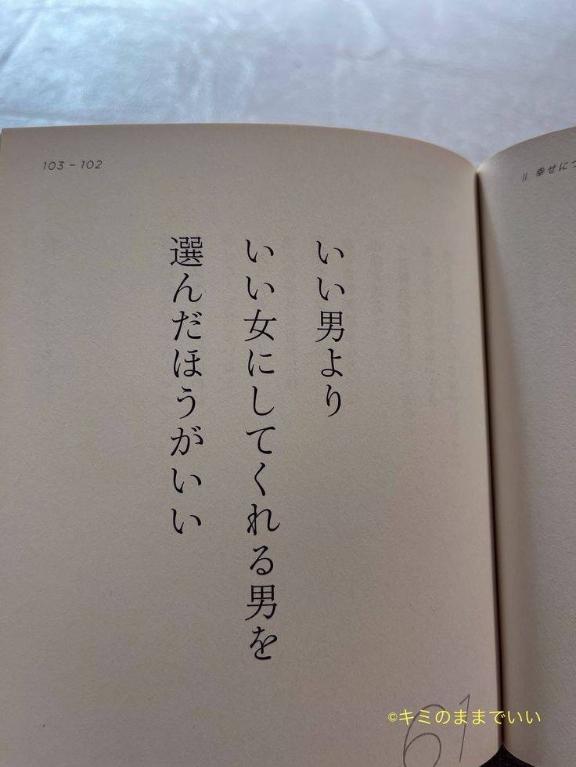 103 – 102
いい男より
いい女にしてくれる男を
選んだほうがいい
61
©キミのままでいい